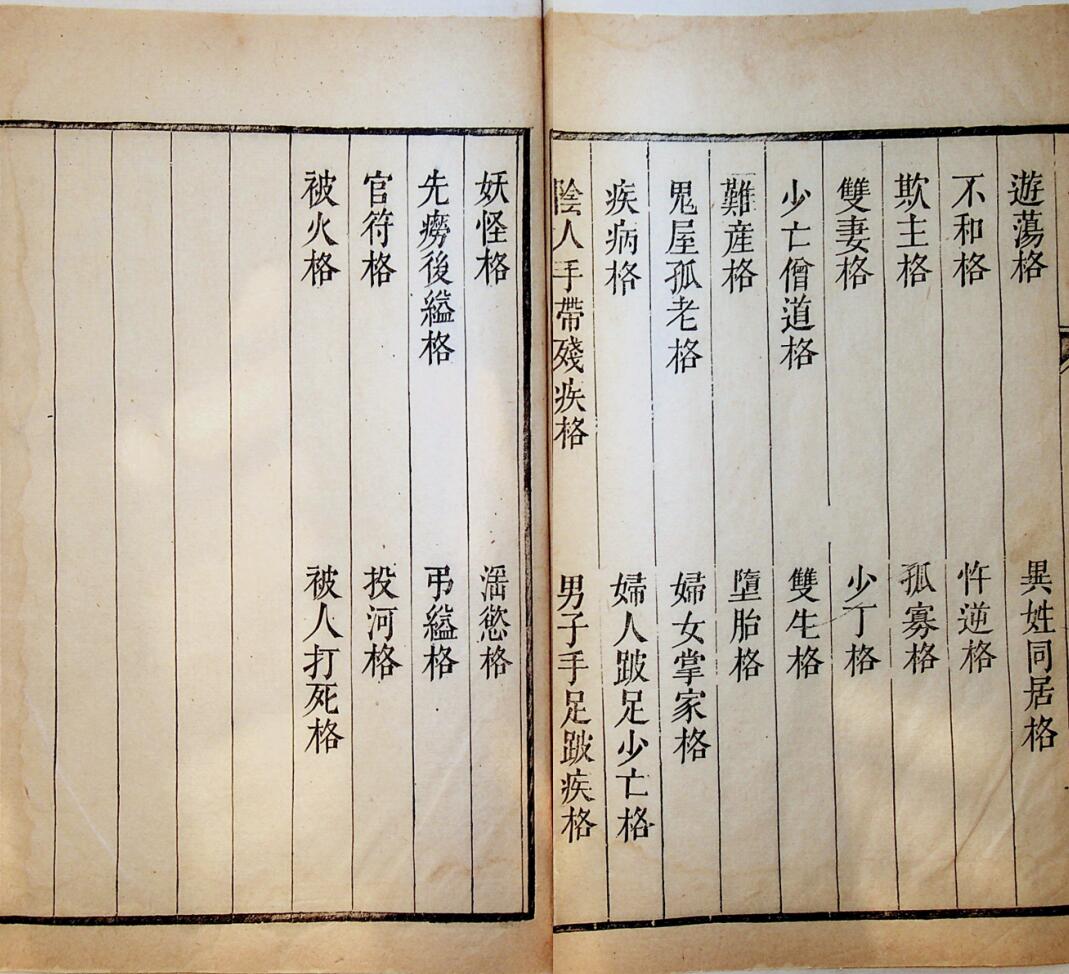 遊蕩格 異姓同居格
不和格 忤逆格
欺主格 孤寡格
雙妻格 少丁格
少亡僧道格 雙生格
難産格 墮胎格
鬼屋孤老格 婦女掌家格
疾病格 婦人跛足少亡格
陰人手帶殘疾格 男子手足跛疾格
妖怪格 滛慾格
先癆後縊格 弔縊格
官符格 投河格
被火格 被人打死格